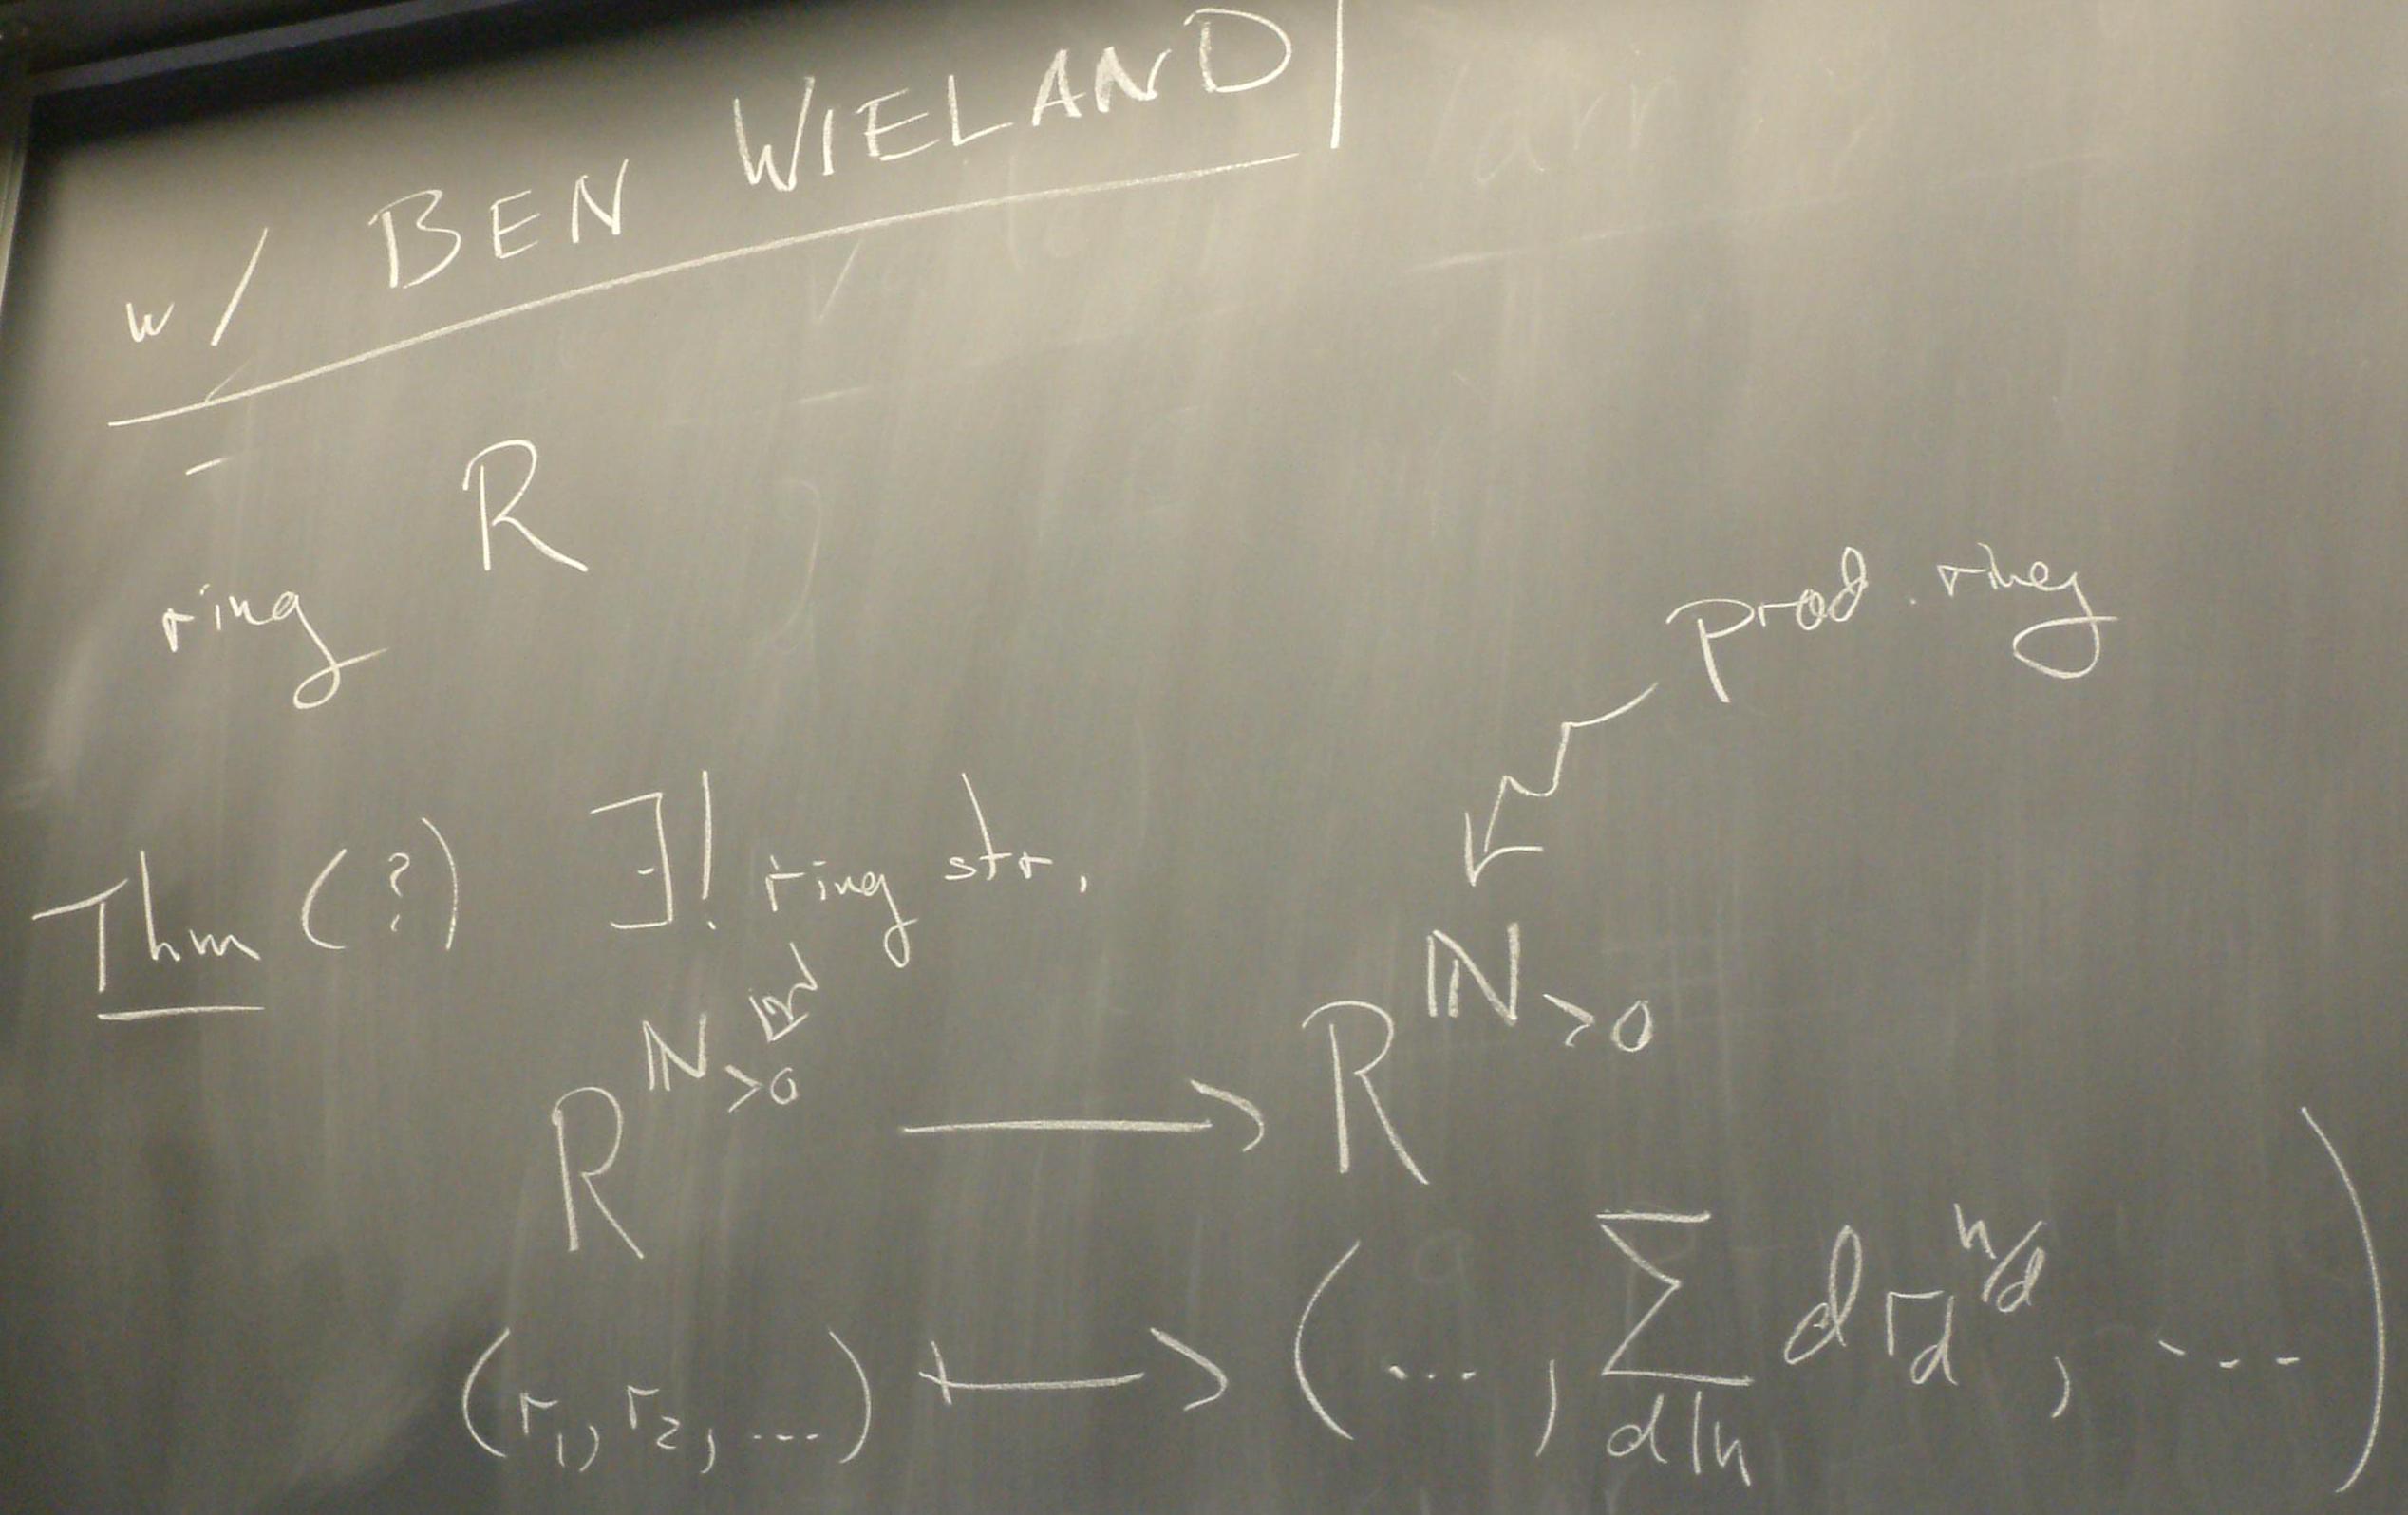 w/ BEN WIELAND
R
ring
prod. ring
Thm (?) ∃! ring str.
R^{ℕ_{>0}} ⟶ R^{ℕ_{>0}}
(r₁, r₂, ...) ⟼ (..., ∑_{d|n} d r_d^{n/d}, ...)